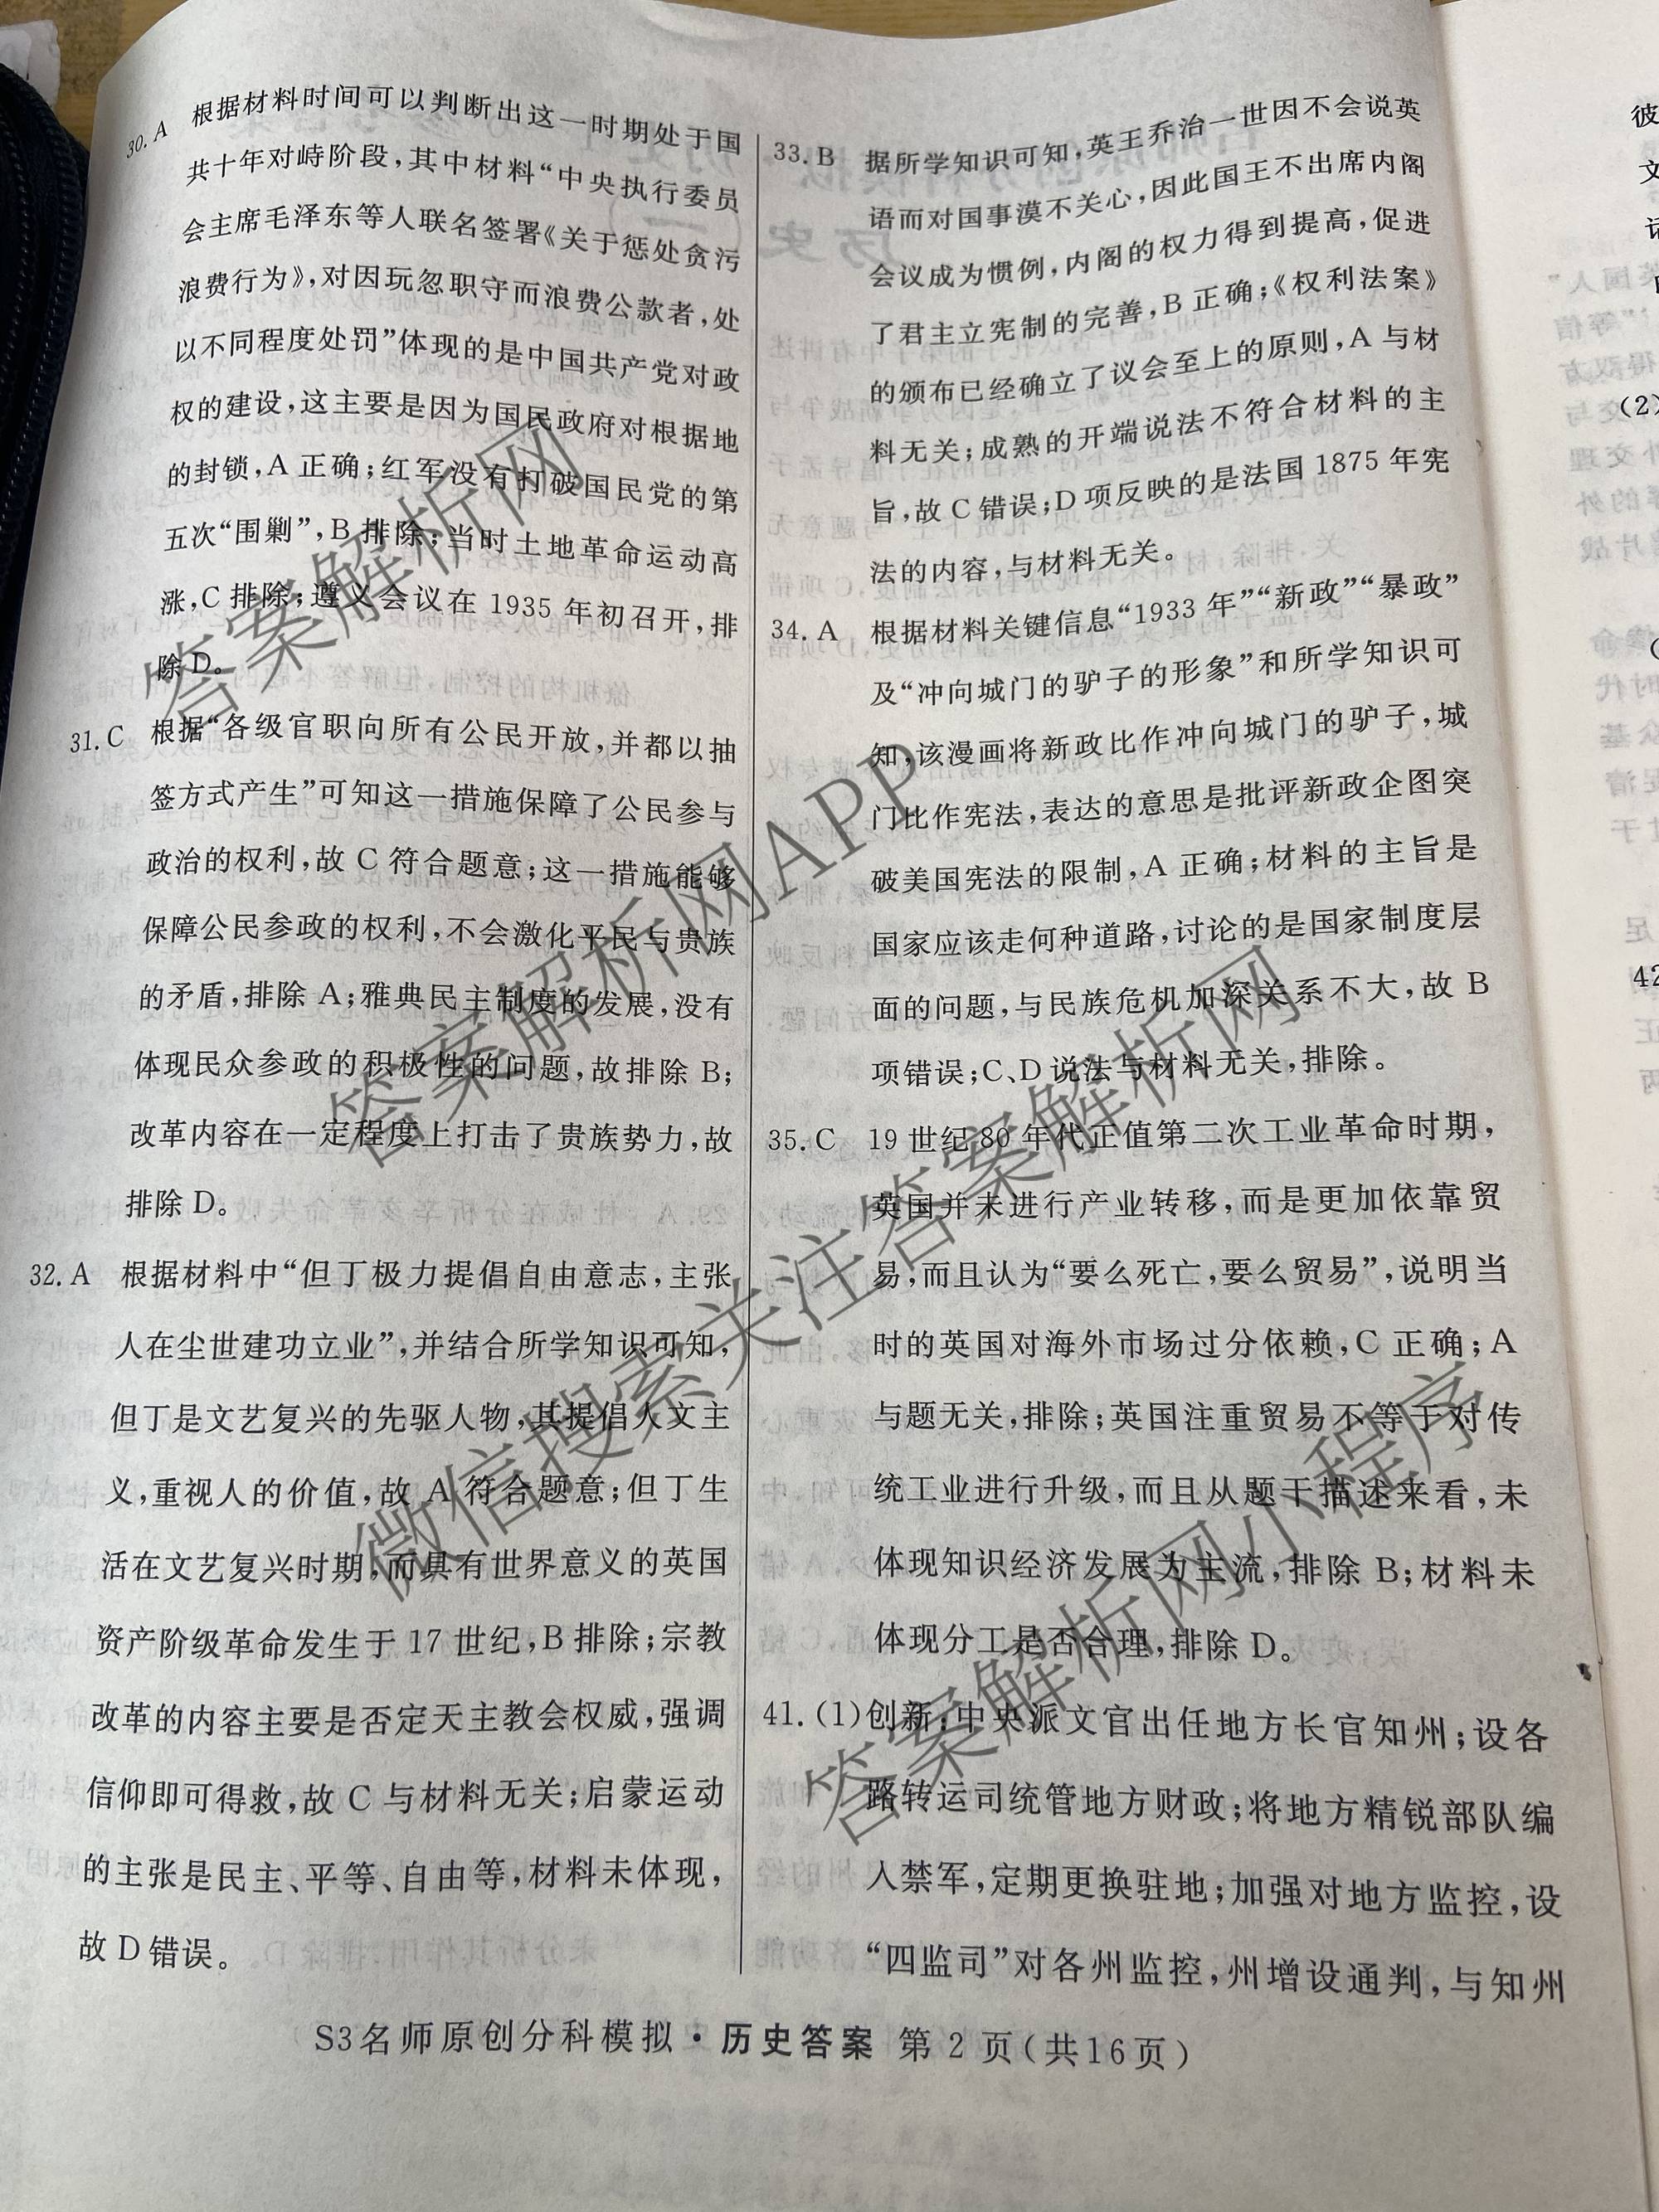 30. A 根据材料时间可以判断出这一时期处于国
共十年对峙阶段,其中材料“中央执行委员
会主席毛泽东等人联名签署《关于惩处贪污
浪费行为》,对因玩忽职守而浪费公款者,处
以不同程度处罚”体现的是中国共产党对政
权的建设,这主要是因为国民政府对根据地
的封锁,A正确;红军没有打破国民党的第
五次“围剿”,B排除;当时土地革命运动高
涨,C排除;遵义会议在1935年初召开,排
除D。
31. C 根据“各级官职向所有公民开放,并都以抽
签方式产生”可知这一措施保障了公民参与
政治的权利,故C符合题意;这一措施能够
保障公民参政的权利,不会激化平民与贵族
的矛盾,排除A;雅典民主制度的发展,没有
体现民众参政的积极性的问题,故排除B;
改革内容在一定程度上打击了贵族势力,故
排除D。
32. A 根据材料中“但丁极力提倡自由意志,主张
人在尘世建功立业”,并结合所学知识可知,
但丁是文艺复兴的先驱人物,其提倡人文主
义,重视人的价值,故A符合题意;但丁生
活在文艺复兴时期,而具有世界意义的英国
资产阶级革命发生于17世纪,B排除;宗教
改革的内容主要是否定天主教会权威,强调
信仰即可得救,故C与材料无关;启蒙运动
的主张是民主、平等、自由等,材料未体现,
故D错误。
33. B 据所学知识可知,英王乔治一世因不会说英
语而对国事漠不关心,因此国王不出席内阁
会议成为惯例,内阁的权力得到提高,促进
了君主立宪制的完善,B正确;《权利法案》
的颁布已经确立了议会至上的原则,A与材
料无关;成熟的开端说法不符合材料的主
旨,故C错误;D项反映的是法国1875年宪
法的内容,与材料无关。
34. A 根据材料关键信息“1933年”“新政”“暴政”
及“冲向城门的驴子的形象”和所学知识可
知,该漫画将新政比作冲向城门的驴子,城
门比作宪法,表达的意思是批评新政企图突
破美国宪法的限制,A正确;材料的主旨是
国家应该走何种道路,讨论的是国家制度层
面的问题,与民族危机加深关系不大,故B
项错误;C、D说法与材料无关,排除。
35. C 19世纪80年代正值第二次工业革命时期,
英国并未进行产业转移,而是更加依靠贸
易,而且认为“要么死亡,要么贸易”,说明当
时的英国对海外市场过分依赖,C正确;A
与题无关,排除;英国注重贸易不等于对传
统工业进行升级,而且从题干描述来看,未
体现知识经济发展为主流,排除B;材料未
体现分工是否合理,排除D。
41. (1)创新:中央派文官出任地方长官知州;设各
路转运司统管地方财政;将地方精锐部队编
入禁军,定期更换驻地;加强对地方监控,设
“四监司”对各州监控,州增设通判,与知州
S3名师原创分科模拟·历史答案 第2页(共16页)
答案解析网
答案解析网APP
微信搜索关注答案解析网
答案解析网小程序
(2)
42